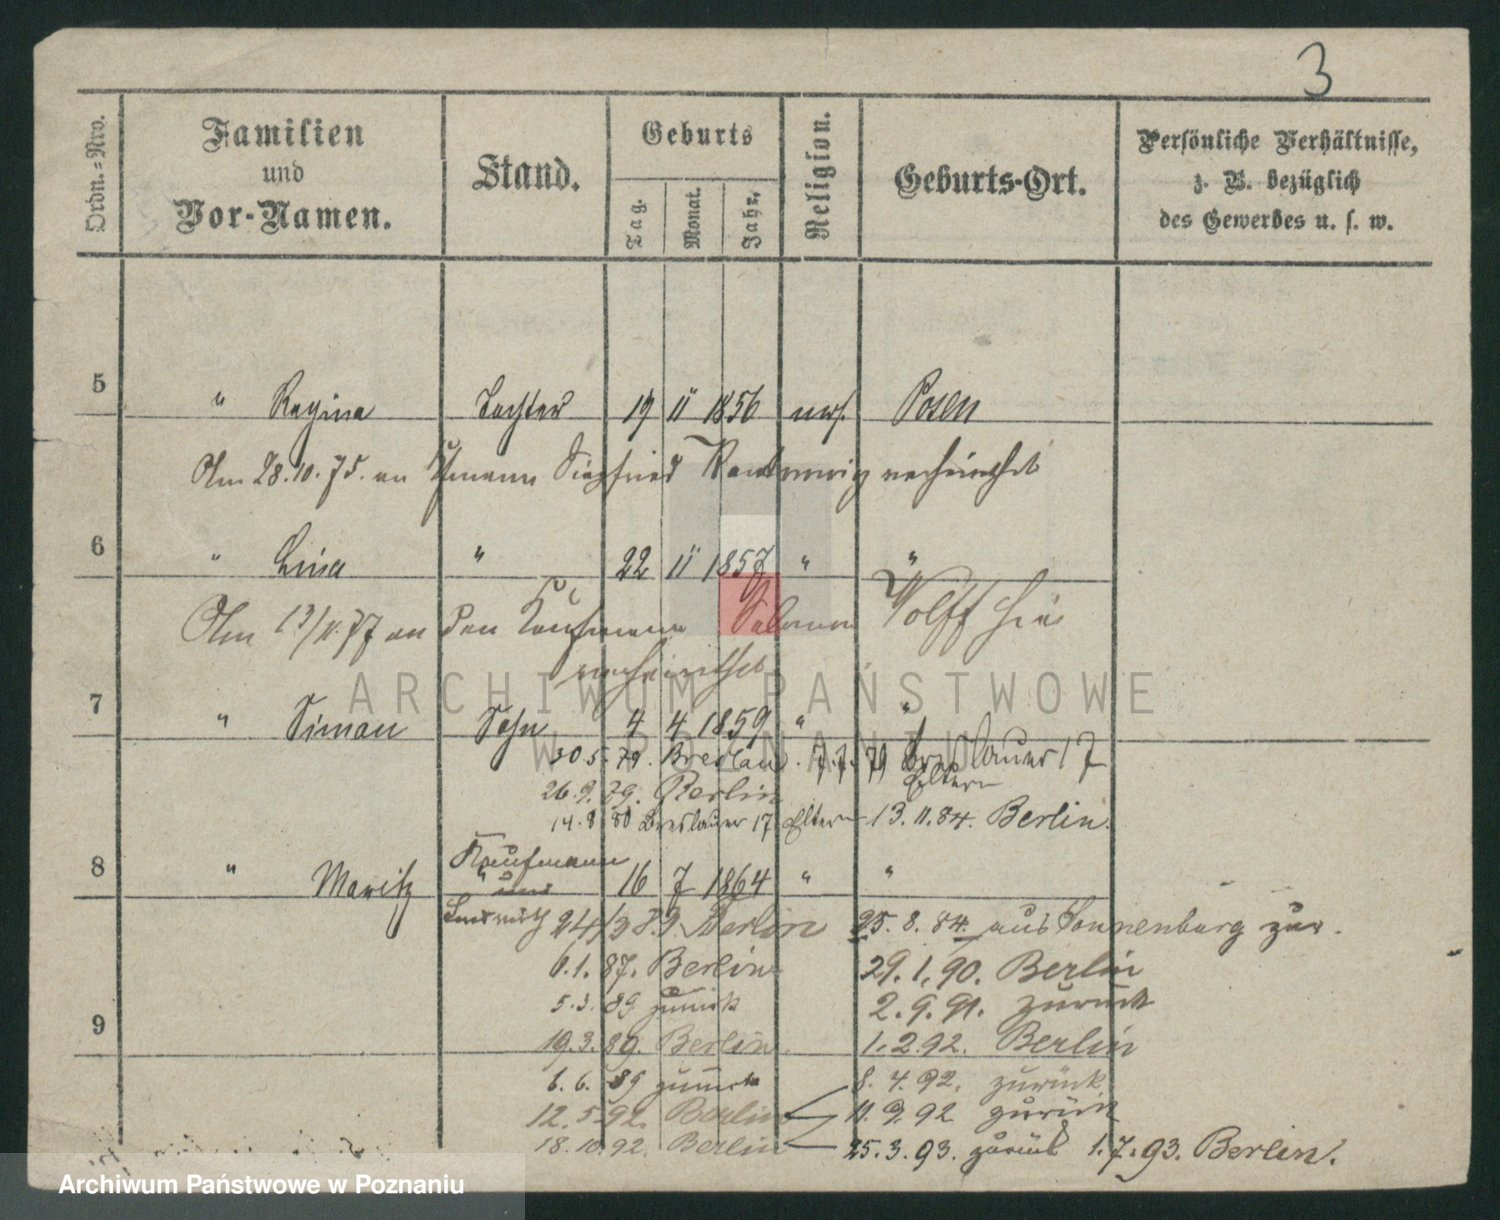 3
Ordn.=Nro.
Familien
und
Vor-Namen.
Stand.
Geburts
Tag.
Monat.
Jahr.
Religion.
Geburts-Ort.
Persönliche Verhältnisse,
z. B. bezüglich
des Gewerbes u. s. w.
5 " Regina Tochter 19 11 1856 mos. Posen
Am 28.10.75. an Kfmann Siegfried verheirathet
6 " Lina " 22 11 1857 " "
Am 13/11.77 an den Kaufmann Salomon Wolff hier
verheirathet
7 " Simon Sohn 4 4 1859 " "
30.5.79. Breslau. 7.7.79 Breslauer 17
Eltern
26.9.79. Berlin
14.8 80 Breslauer 17 Eltern 13.11.84. Berlin.
Kaufmann
8 " Moritz " 16 7 1864 " "
Landwirth 24/3 82. Berlin 25.8.84. aus Sonnenburg zur.
6.1.87. Berlin 29.1.90. Berlin
5.3.89 zurück 2.9.91. zurück
9
19.3.89. Berlin. 1.2.92. Berlin
6.6.89 zurück 8.4.92. zurück
12.5.92. Berlin 11.9.92 zurück
18.10.92. Berlin 25.3.93. zurück 1.7.93. Berlin.
ARCHIWUM PAŃSTWOWE
W POZNANIU
Archiwum Państwowe w Poznaniu